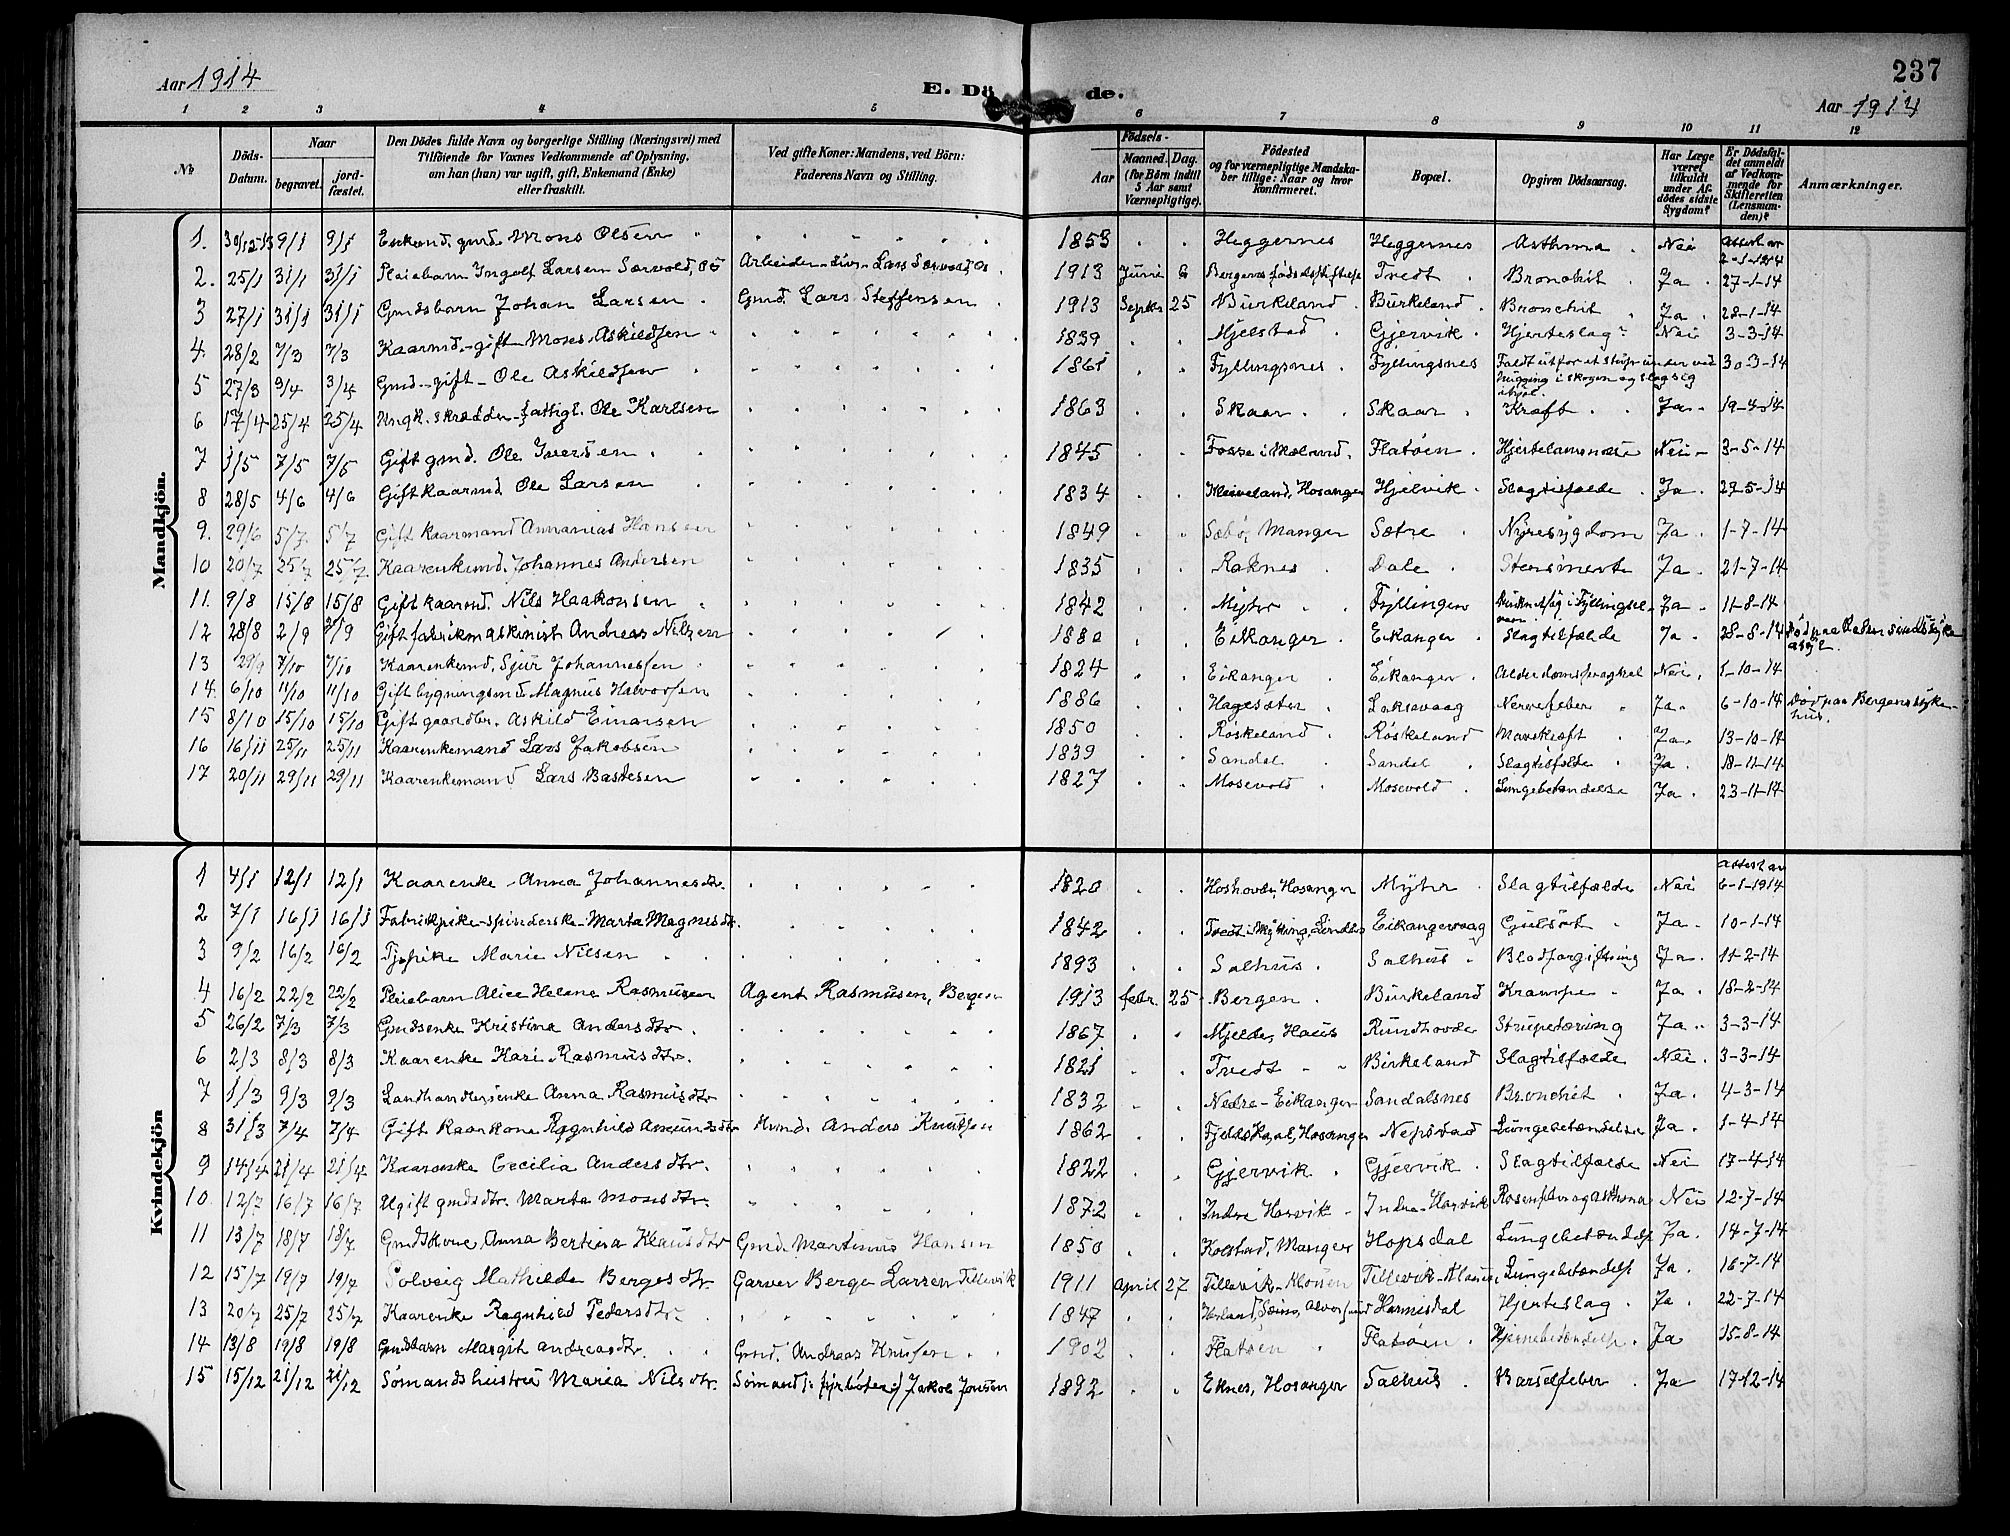 237
Aar 1914
E. Dö de.
Aar 1914
1 2 3 4 5 6 7 8 9 10 11 12
No
Döds-Datum.
Naar
begravet.
jord-fæstet.
Den Dödes fulde Navn og borgerlige Stilling (Næringsvei) med
Tilföiende for Voxnes Vedkommende af Oplysning,
om han (hun) var ugift, gift, Enkemand (Enke)
eller fraskilt.
Ved gifte Koner: Mandens, ved Börn:
Faderens Navn og Stilling.
Födsels-
Aar
Maaned. Dag.
(for Börn indtil
5 Aar samt
Værnepligtige).
Födested
og for værnepligtige Mandska-
ber tillige: Naar og hvor
konfirmeret.
Bopæl.
Opgiven Dödsaarsag.
Har Læge
været
tilkaldt
under Af-
dødes sidste
Sygdom?
Er Dödsfal-
det anmeldt
af Vedkom-
mende for
Skifteretten
(Lensman-
den)?
Anmærkninger.
Mandkjön.
1. 30/12-13 9/1 9/1 Enkemd. gmd. Mons Olsen 1853 Heggernes Heggernes Asthma Nei Attest av 2-1-1914
2. 25/1 31/1 31/1 Pleiebarn Ingolf Larsen Særvold, Os Arbeider Lars Særvold, Os 1913 Juni 6 Bergens fødselsstiftelse Tvedt Bronchit Ja 27-1-14
3 27/1 31/1 31/1 Gmdsbarn Johan Larsen Gmd. Lars Steffensen 1913 Septbr 25 Burkeland Burkeland Bronchit Ja 28-1-14
4. 28/2 7/3 7/3 Kaarmd.-gift Mons Askildsen 1839 Hjelstad Gjervik Hjerteslag Nei 3-3-14
5 27/3 9/4 3/4 Gmd-gift-Ole Askildsen 1861 Fyllingsnes Fyllingsnes Faldt utfor et stup under ved
hugging i skogen og slog sig
ihjel. 30-3-14
6 17/4 25/4 25/4 Ungk. skrædder-fattigl. Ole Karlsen 1863 Skaar Skaar Kræft Ja 19-4-14
7 1/5 7/5 7/5 Gift gmd. Ole Iversen 1845 Fosse i Meland Flatøen Hjertelammelse Nei 3-5-14
8 28/5 4/6 4/6 Gift kaarmd Ole Larsen 1834 Kleiveland, Hosanger Hjelvik Slagtilfælde Ja 29-5-14
9. 29/6 5/7 5/7 Gift kaarmand Annanias Hansen 1849 Sæbø, Manger Sætre Nyresygdom Ja 1-7-14
10 20/7 25/7 25/7 Kaarenkemd. Johannes Andersen 1835 Raknes Dale Stensmerte Ja 21-7-14
11. 9/8 15/8 15/8 Gift kaarmd. Nils Haakonsen 1842 Myhr Fyllingen Ja 11-8-14
12 28/8 2/9 2/9 Gift fabrikmaskinist Andreas Nilsen 1880 Eikanger Eikanger Slagtilfælde Ja 28-8-14 Død paa sindssyke-
asyl.
13 29/9 7/10 7/10 Kaarenkemd. Sjur Johannessen 1824 Eikanger Eikanger Alderdomssvaghet Nei 1-10-14
14. 6/10 11/10 11/10 Gift bygningsmd. Magnus Halvorsen 1886 Hagesæter Laksevaag Nervefeber Ja 6-10-14 Død paa Bergens syke-
hus.
15 8/10 15/10 15/10 Gift gaardbr. Askild Einarsen 1850 Røskeland Røskeland Mavekræft Ja 13-10-14
16 16/11 25/11 25/11 Kaarenkemand Lars Jakobsen 1839 Sandal Sandal Slagtilfælde Ja 18-11-14
17 20/11 29/11 29/11 Kaarenkemand Lars Bastesen 1827 Mosevold Mosevold Lungebetændelse Ja 23-11-14
Kvindekjön
1 4/1 12/1 12/1 Kaarenke-Anna Johannesdtr. 1820 Hoshovde, Hosanger Myhr Slagtilfælde Nei Attest av 6-1-1914
2 7/1 16/1 16/1 Fabrikpike-spinderske-Marta Magnesdtr. 1842 Tvedt i Myking, Lindås Eikangervaag Gulsot Ja 10-1-14
3 9/2 16/2 16/2 Tjspike Marie Nilsen 1893 Salhus Salhus Blodforgiftning Ja 11-2-14
4 16/2 22/2 22/2 Pleiebarn Alice Helene Rasmusen Agent Rasmusen, Bergen 1913 febr. 25 Bergen Burkeland Krampe Ja 18-2-14
5 26/2 7/3 7/3 Gmdsenke Kristina Andersdtr. 1867 Mjelde, Haus Rundhovde Strupetæring Ja 3-3-14
6 2/3 8/3 8/3 Kaarenke Kari Rasmusdtr. 1821 Tvedt Birkeland Slagtilfælde Nei 3-3-14
7 1/3 9/3 9/3 Landhandlerenke Anna Rasmusdtr 1832 Nedre-Eikanger Sandalsnes Bronchit Ja 4-3-14
8 31/3 7/4 7/4 Gift kaarkone Ragnhild Amundsdtr Anders Knutsen 1862 Fjeldskaal, Hosanger Nepstad Lungebetændelse Ja 1-4-14
9 14/4 21/4 21/4 Kaarenke Cecilia Andersdtr. 1822 Gjervik Gjervik Slagtilfælde Nei 17-4-14
10. 12/7 16/7 16/7 Ugift gmdsdtr. Marta Monsdtr. 1872 Indre Hosvik Indre-Hosvik Rosenfeber og asthma Nei 12-7-14
11 13/7 18/7 18/7 Gmdskone, Anna Bertina Klausdtr Gmd. Martinus Hansen 1850 Kolstad, Manger Hopsdal Lungebetændelse Ja 14-7-14
12 15/7 19/7 19/7 Solveig Mathilde Bergesdtr. Garver Berge Larsen Tellevik 1911 April 27 Tellevik Tellevik Lungebetændelse Ja 16-7-14
13 20/7 25/7 25/7 Kaarenke Ragnhild Pedersdtr. 1847 Seim, Alversund Hannisdal Hjerteslag Ja 22-7-14
14 13/8 19/8 19/8 Gmdsbarn Margit Andreasdtr. Gmd. Andreas Knutsen 1902 Flatøen Flatøen Hjernebetændelse Ja 15-8-14
15 15/12 21/12 21/12 Sømandshustru Maria Nilsdtr. Sømand (: fyrbøter :) Jakob Jonsen 1892 Eknes, Hosanger Salhus Barselfeber Ja 17-12-14